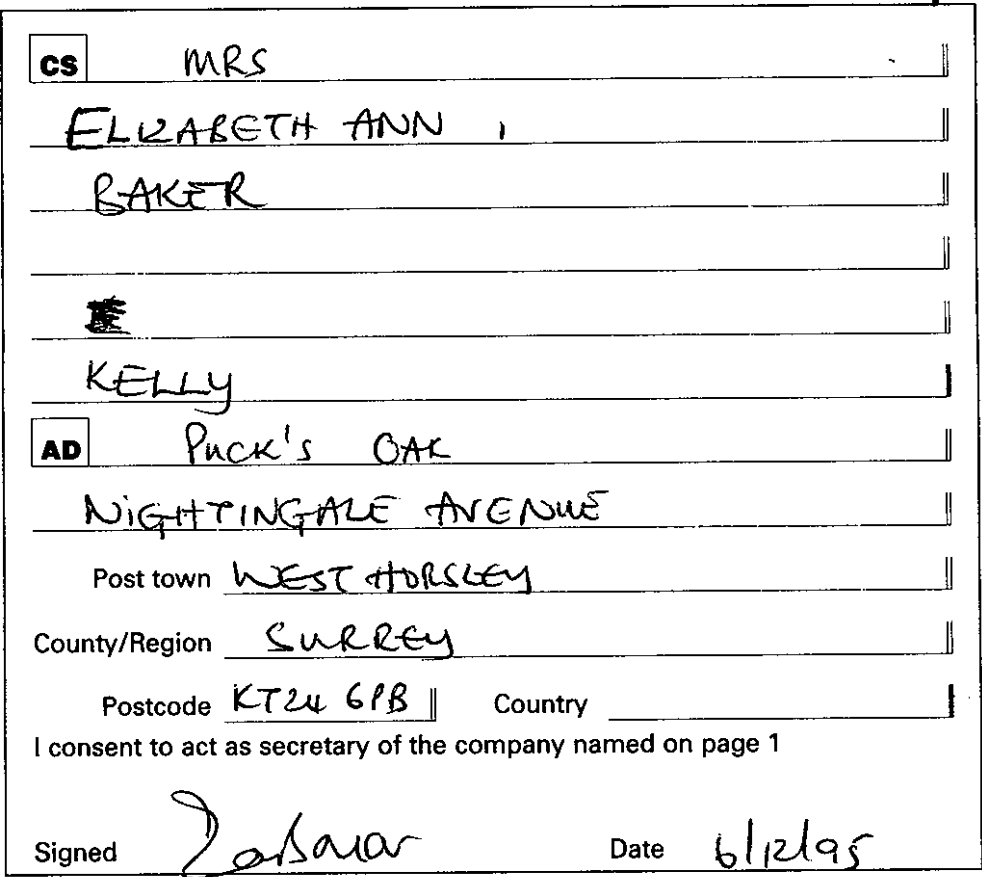 CS MRS
ELIZABETH ANN ,
BAKER
KELLY
AD PUCK'S OAK
NIGHTINGALE AVENUE
Post town WEST HORSLEY
County/Region SURREY
Postcode KT24 6PB Country
I consent to act as secretary of the company named on page 1
Signed Date 6/12/95